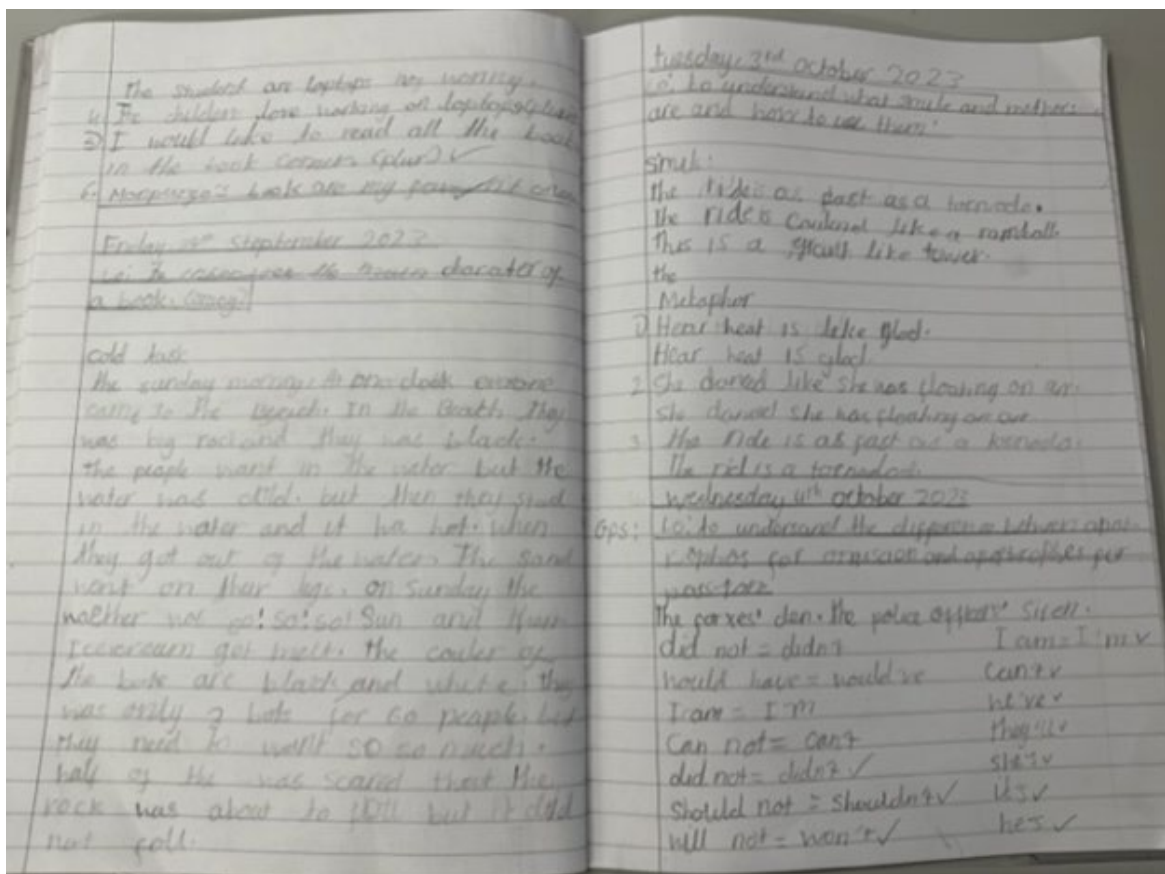 The student are laptops not working.
4 The childern love working on laptops (plural)
5) I would like to read all the book
in the book corner. (plur) ✓
6- Morpurgo's book are my
Friday Steptember 2023
Lo: To the charater of
a book.
cold task
the sunday morning. At one clock
came to the Beach. In the Beach They
was big rock and they was black.
The people want in the water but the
water was cold. but then they stad
in the water and it was hot. when
they got out of the water. The sand
want on ther legs. on Sunday the
weather was so! so! so! Sun and
Icecream got melt. the couler of
the bots are black and white. they
was only 2 bots for 60 people. but
they need to wait so so much.
half of the was scared that the
rock was about to but it did
not
tuesday, 3rd October 2023
Lo: to understand what and
are and how to use them.
simile:
the ride is as fast as a tornado.
the ride is like a
This is a like tower.
the
Metaphor
1) Hear heat is like glod.
Hear heat is glod.
2. She danced like she was floating on air.
she danced she was floating on air.
3. the ride is as fast as a tornado.
The rid is a tornado.
Wednesday 4th october 2023
Gps: Lo: to understand the difference between
for omission and for
The foxes' den. the police officers'
did not = didn't I am = I'm ✓
would have = would've can't ✓
I am = I'm
Can not = can't they'll ✓
did not = didn't ✓ she's ✓
Should not = shouldn't ✓ it's ✓
will not = won't ✓ he's ✓